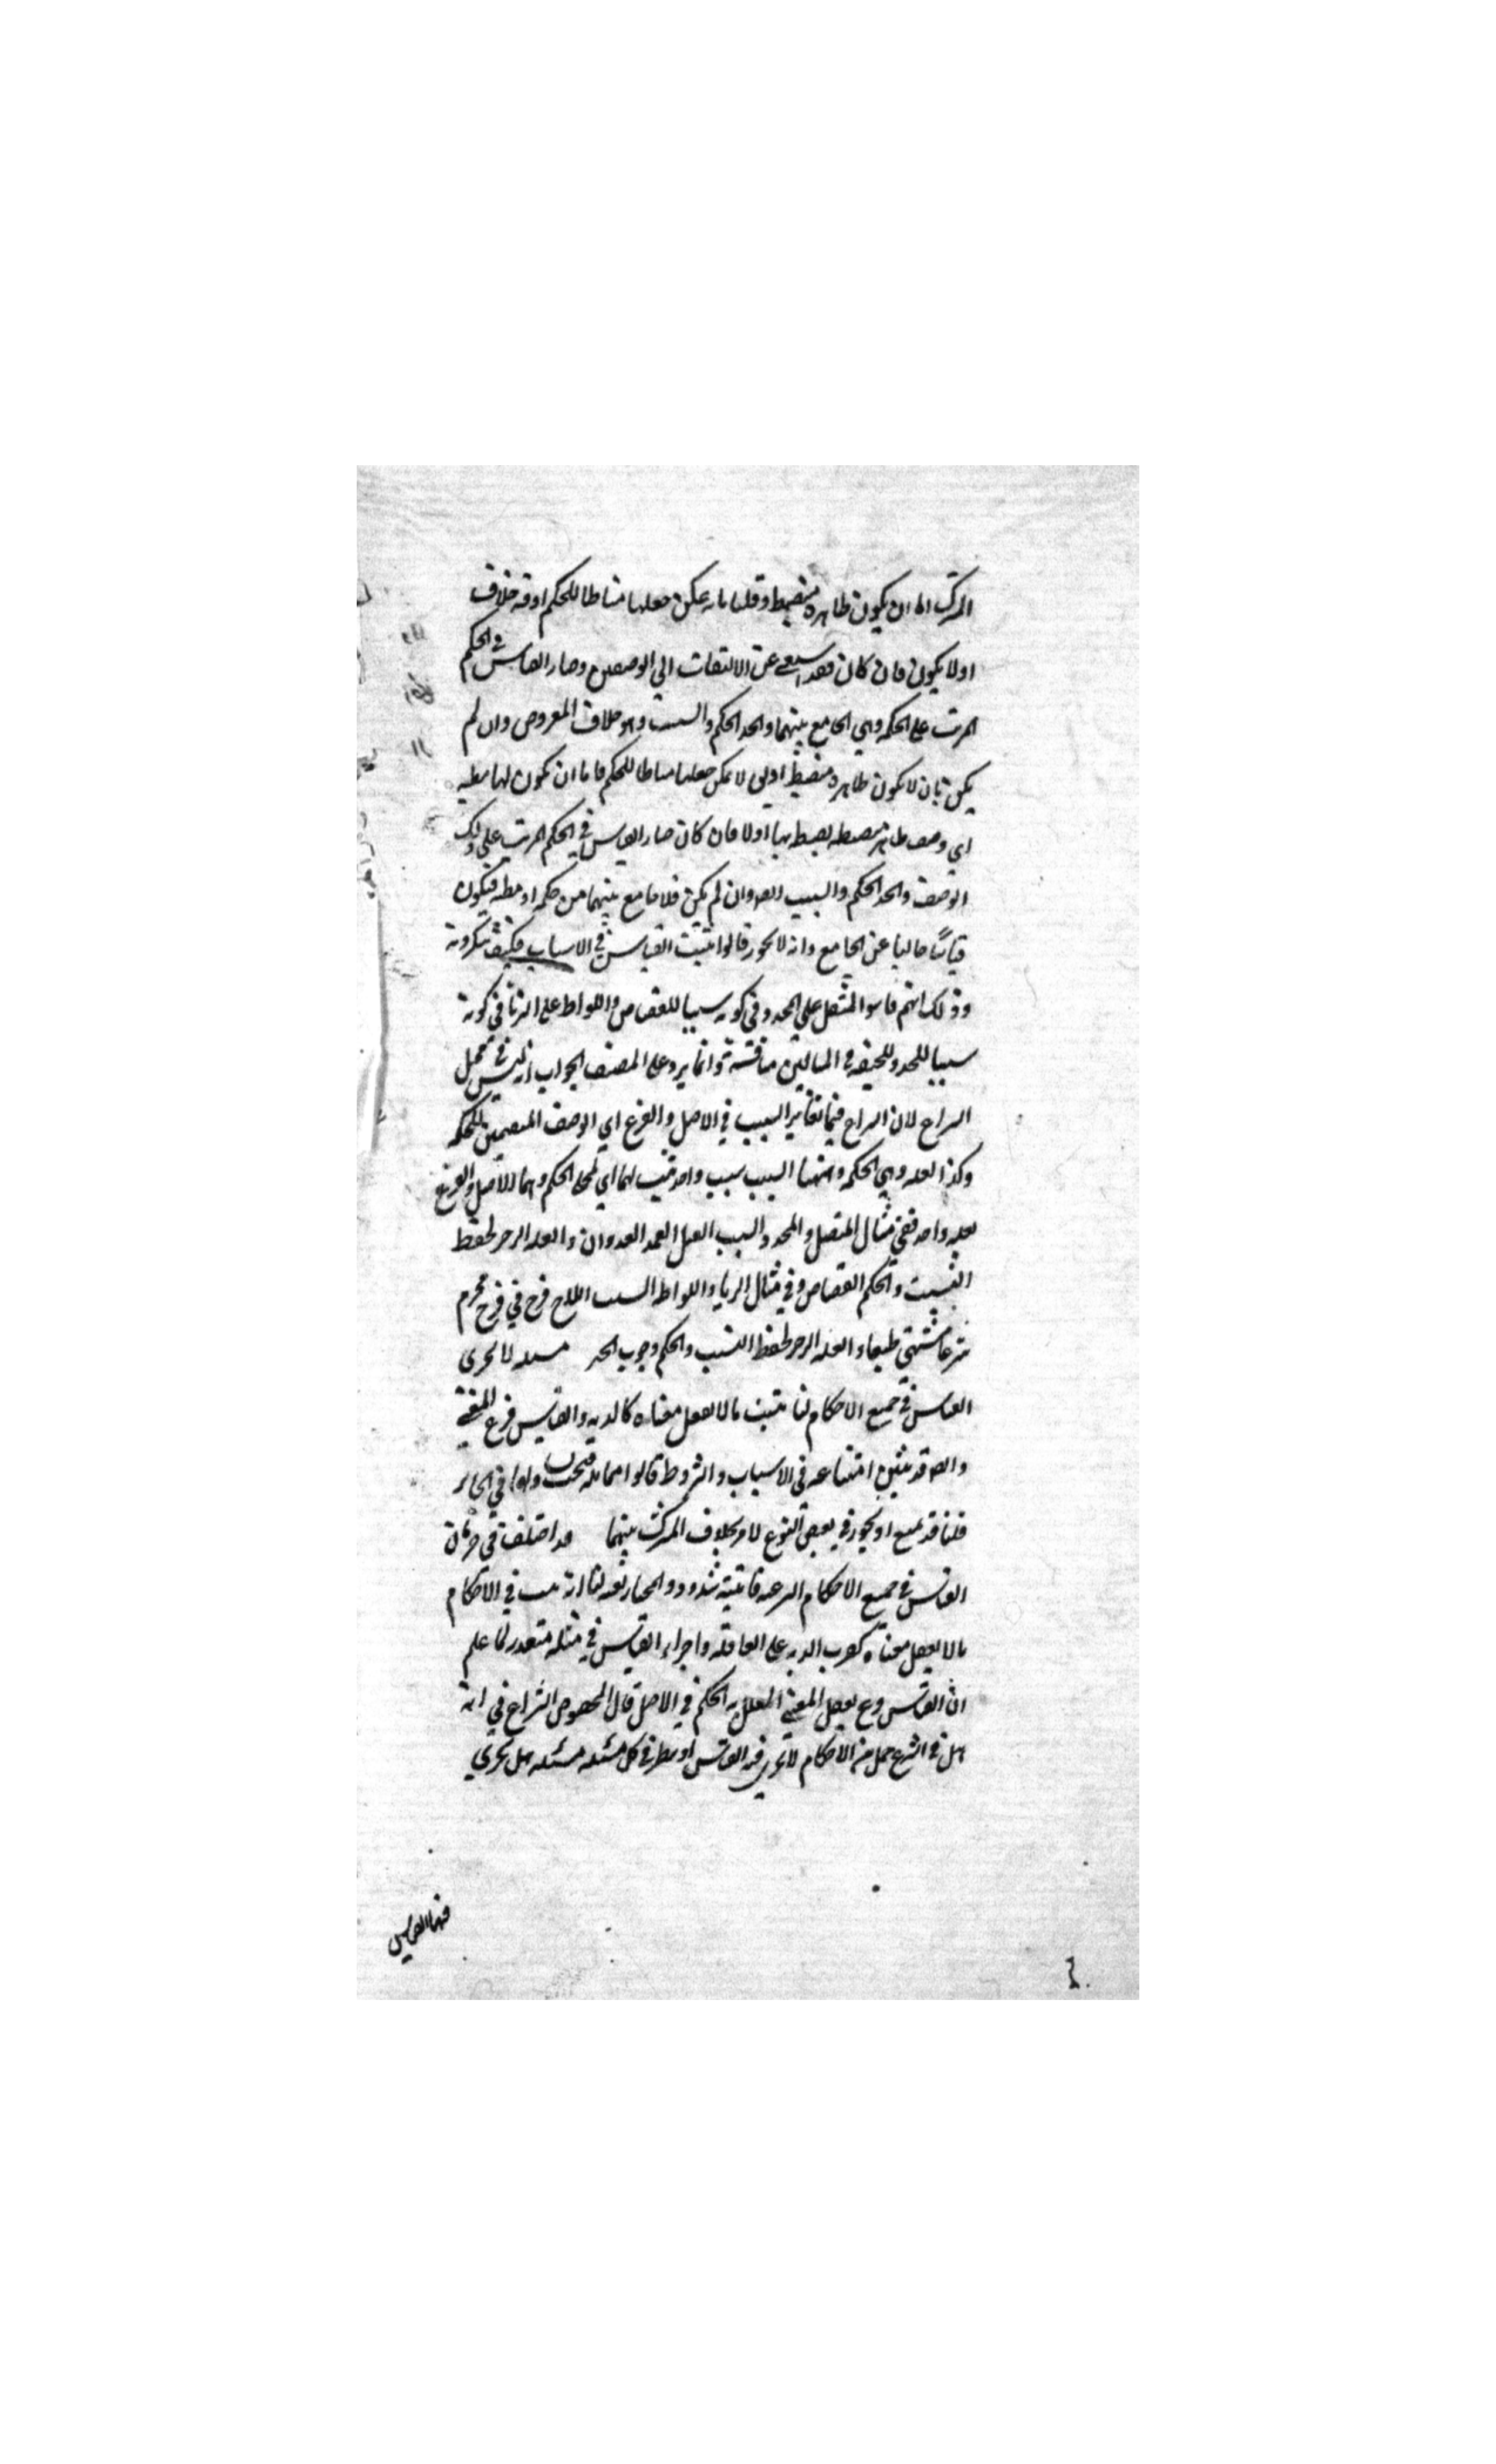 المشترك اما ان يكون ظاهره منضبطه وقلنا بانه يمكن جعلها مناطا للحكم اذ فيه خلاف
او لا يكون فان كان فقد استغنى عن الالتفات الى الوصفين وصار القياس في الحكم
المرتب على الحكمه وهي الجامع بينهما واتحد الحكم والسبب وهو خلاف المفروض وان لم
يكن بان لا يكون ظاهره منضبطه او لا يمكن جعلها مناطا للحكم فاما ان يكون لها مظنه
اي وصف ظاهر منضبطه يضبط بها او لا فان كان صار القياس في الحكم المرتب على ذلك
الوصف واتحد الحكم والسبب ايضا وان لم يكن فلا جامع بينهما من حكمه او مظنه فيكون
قياسا خاليا عن الجامع وانه لا يجوز قالوا ثبت القياس في الاسباب فكيف تنكرونه
وذلك انهم قاسوا المثقل على المحدد في كونه سببا للقصاص واللواط على الزنا في كونه
سببا للحد وللحنفيه في المسالتين مناقشة وانما يرد على المصنف الجواب انه ليس في محل
النزاع لان النزاع فيما تغاير السبب في الاصل والفرع اي الوصف المتضمن للحكمه
وكذا العله وهي الحكمه وههنا السبب سبب واحد يثبت لهما اي لمحلي الحكم وهما الاصل والفرع
بعله واحده ففي مثال المثقل والمحدد السبب القتل العمد العدوان والعله الزجر لحفظ
النفس والحكم القصاص وفي مثال الزنا واللواط السبب ايلاج فرج في فرج محرم
شرعا مشتهى طبعا والعله الزجر لحفظ النسب والحكم وجوب الحد مسله لا يجري
القياس في جميع الاحكام لنا ثبت ما لا يعقل معناه كالديه والقياس فرع المعنى
وايضا قد تبين امتناعه في الاسباب والشروط قالوا متماثله فيجب تساويها في الجايز
قلنا قد يمتنع او يجوز في بعض النوع لامر بخلاف المشترك بينهما قد اختلف في جريان
القياس في جميع الاحكام الشرعيه فاثبته شذوذ والمختار نفيه لنا انه ثبت في الاحكام
ما لا يعقل معناه كضرب الديه على العاقله واجراء القياس في مثله متعذر لما علم
ان القياس فرع تعقل المعنى المعلل به الحكم في الاصل قال المحصول النزاع في انه
هل في الشرع جمل من الاحكام لا يجري فيه القياس او ينظر في كل مسئله مسئله هل يجري
فيها القياس